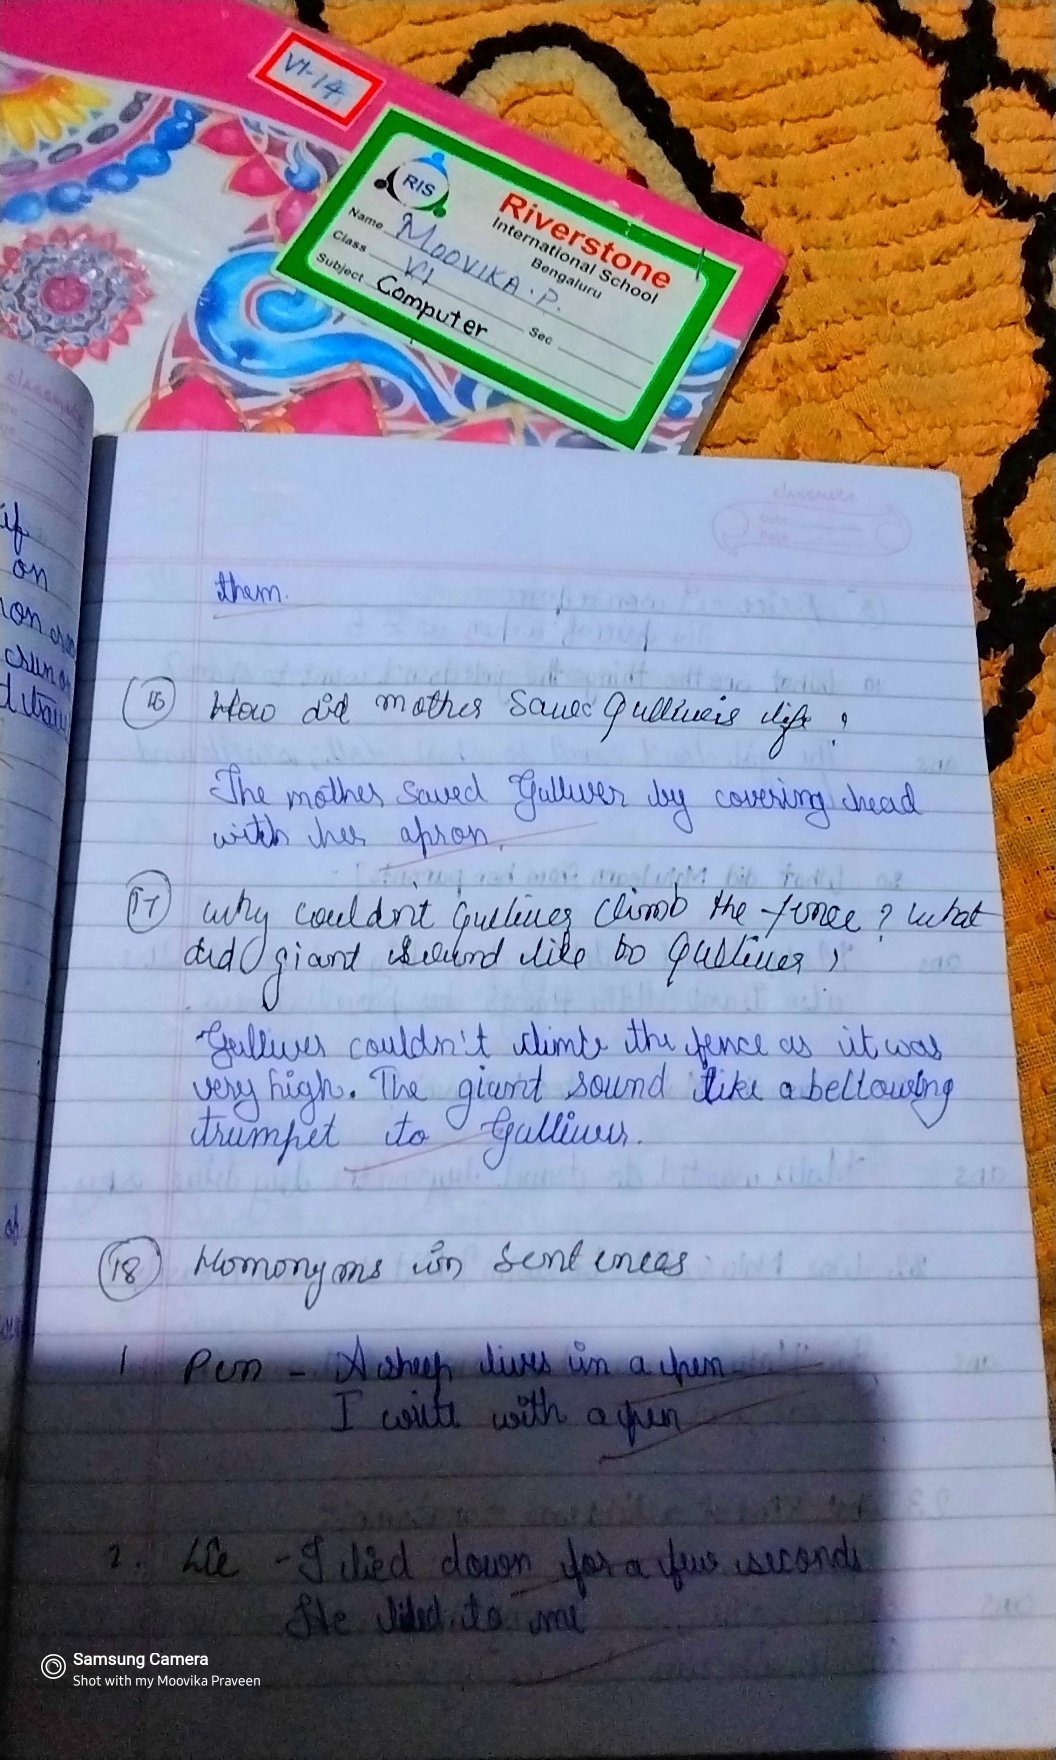 VI-14
RIS
Riverstone
International School
Bengaluru
Name MOOVIKA.P.
Class VI Sec
Subject Computer
classmate
Date
Page
if
on
them.
16 How did mother Save Gulliver's life?
The mother saved Gulliver by covering head
with her apron.
17 Why couldn't Gulliver climb the fence? What
did giant sound like to Gulliver?
Gulliver couldn't climb the fence as it was
very high. The giant sound like a bellowing
trumpet to Gulliver.
18 Homonyms in Sentences
1. Pen - A sheep lives in a pen
I write with a pen
2. Lie - I lied down for a few seconds
He lied to me
Samsung Camera
Shot with my Moovika Praveen